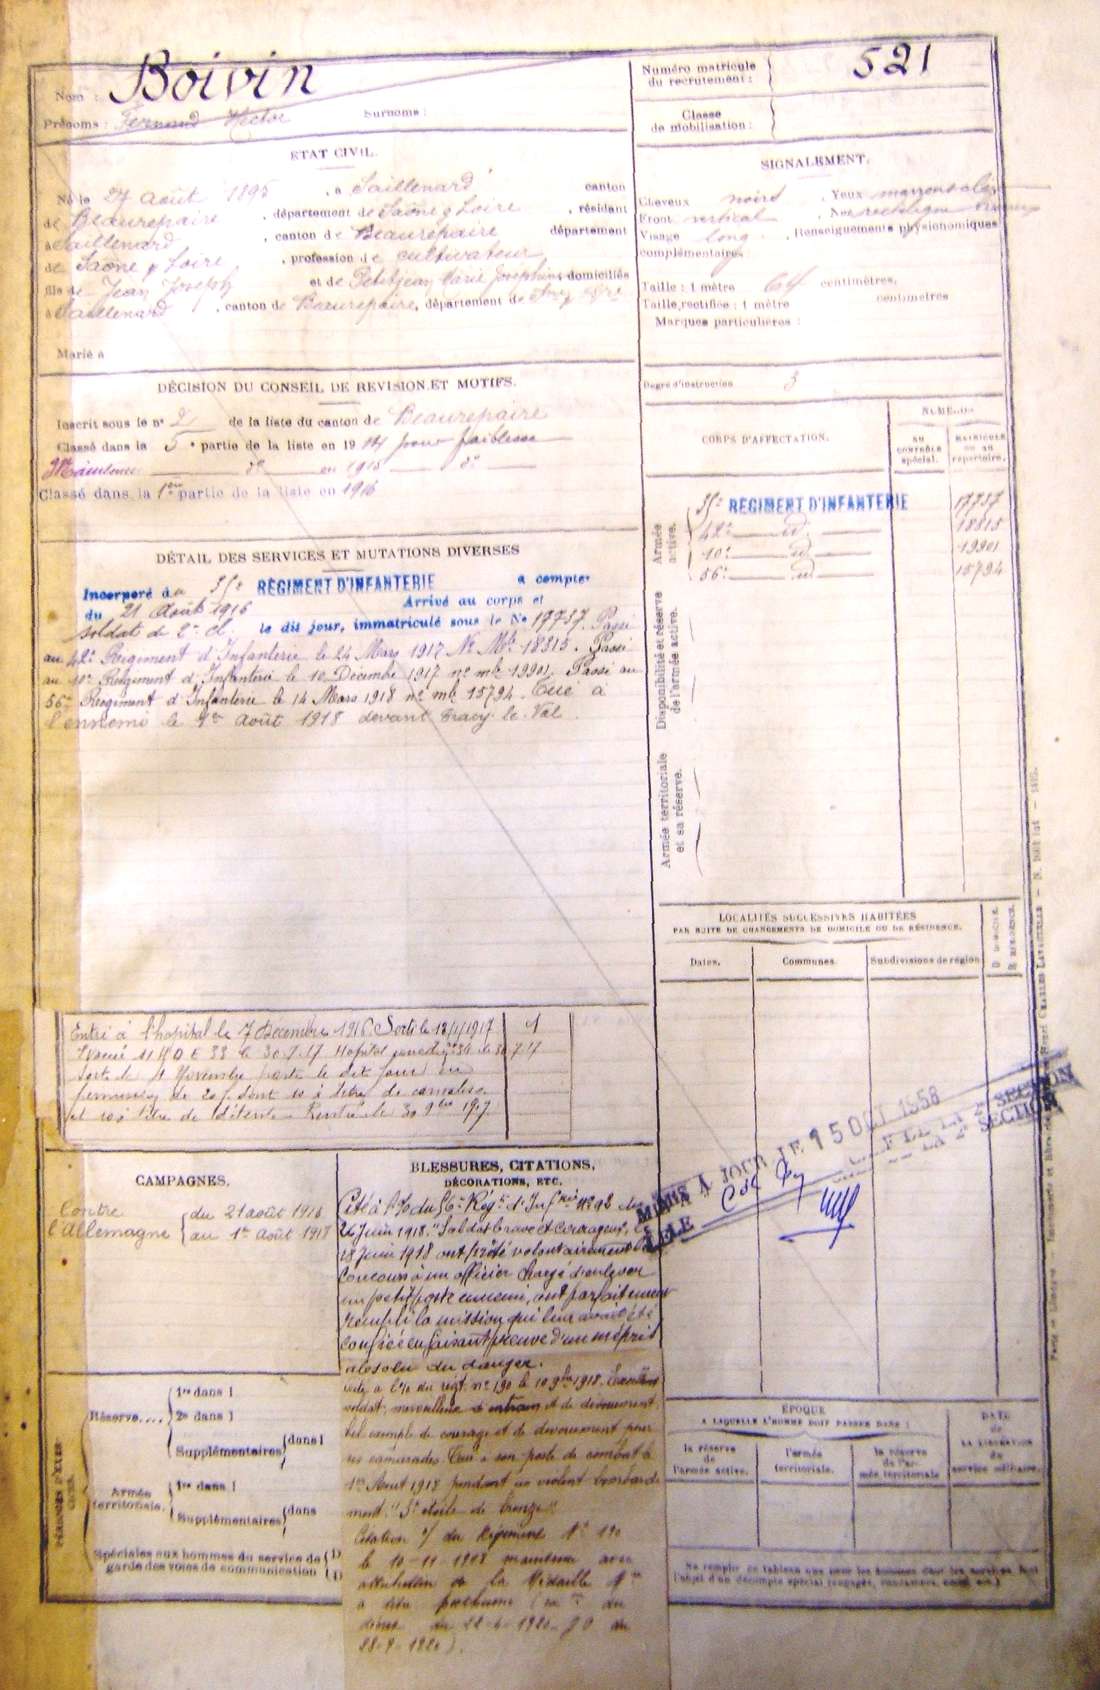 Nom : Boivin
Prénoms : Fernand Hector Surnoms :
Numéro matricule du recrutement : 521
Classe de mobilisation :
ETAT CIVIL.
Né le 27 août 1895, à Saillenard canton
de Beaurepaire, département de Saône & Loire, résidant
à Saillenard, canton de Beaurepaire département
de Saône & Loire, profession de cultivateur
fils de Jean Joseph et de Petitjean Marie Joséphine domiciliés
à Saillenard, canton de Beaurepaire, département de
Marié à
SIGNALEMENT.
Cheveux noirs. Yeux marrons
Front vertical. Nez rectiligne
Visage long. Renseignements physionomiques
complémentaires
Taille : 1 mètre 64 centimètres,
Taille rectifiée : 1 mètre centimètres
Marques particulières :
Degré d'instruction 3
DÉCISION DU CONSEIL DE REVISION ET MOTIFS.
Inscrit sous le n° 2 de la liste du canton de Beaurepaire
Classé dans la 5e partie de la liste en 1914 pour faiblesse
Maintenu d° en 1915 d°
Classé dans la 1ère partie de la liste en 1916
CORPS D'AFFECTATION.
NUMÉROS
AU CONTRÔLE spécial.
MATRICULE ou au répertoire.
Armée active.
35e RÉGIMENT D'INFANTERIE 17737
42e id 18315
10e id 19901
56e id 15794
Disponibilité et réserve de l'armée active.
Armée territoriale et sa réserve.
DÉTAIL DES SERVICES ET MUTATIONS DIVERSES
Incorporé au 35e RÉGIMENT D'INFANTERIE à compter
du 21 Août 1916 Arrivé au corps et
soldat de 2e cl. le dit jour, immatriculé sous le No 17737. Passé
au 42e Régiment d'Infanterie le 24 Mars 1917 No Mle 18315. Passé
au 10e Régiment d'Infanterie le 10 Décembre 1917 no mle 19901. Passé au
56e Régiment d'Infanterie le 14 Mars 1918 no mle 15794. Tué à
l'ennemi le 1er août 1918 devant Tracy-le-Val.
LOCALITÉS SUCCESSIVES HABITÉES
PAR SUITE DE CHANGEMENTS DE DOMICILE OU DE RÉSIDENCE.
Dates. Communes. Subdivisions de région D. DOMICILE. R. RÉSIDENCE.
Entré à l'hôpital le 7 Décembre 1916. Sorti le 12/1/1917 1
Evacué H O E 33 le 30.7.17 Hôpital 34 le 30 7.17
Sorti le Novembre parti le dit jour en
permission de 20 j. dont 10 à titre de convalesce
et 10 à titre de détente. Rentré le 30 9bre 1917
MIS À JOUR LE 15 OCT 1958
LE LA 2e SECTION
LA 2e SECTION
CAMPAGNES.
Contre l'Allemagne
du 21 août 1916
au 1er août 1918
BLESSURES, CITATIONS,
DÉCORATIONS, ETC.
Cité à l'O du 56e Régt d'Infrie No 92 du
26 Juin 1918. "Soldat brave et courageux, le
18 Juin 1918 ont prêté volontairement le
concours à un officier chargé d'enlever
un petit poste ennemi, ont parfaitement
rempli la mission qui leur avait été
confiée en faisant preuve d'un mépris
absolu du danger.
Cité à l'O du régt no 190 le 10 9bre 1918.
soldat, merveilleux d'entrain et de dévouement,
bel exemple de courage et de dévouement pour
ses camarades. Tué à son poste de combat le
1er Août 1918 pendant un violent bombarde
ment." Et étoile de bronze"
Citation O/ du Régiment No 190
le 10-11-1918 maintenue avec
attribution de la Médaille Mre
à titre posthume
du 22-4-1920 JO du
28-9-1920).
PÉRIODES D'EXERCICES.
Réserve....
1re dans l
2e dans l
Supplémentaires dans l
Armée territoriale.
1re dans l
Supplémentaires dans
Spéciales aux hommes du service de garde des voies de communication
ÉPOQUE
A LAQUELLE L'HOMME DOIT PASSER DANS :
la réserve de l'armée active.
l'armée territoriale.
la réserve de l'armée territoriale
DATE de LA LIBÉRATION du service militaire.